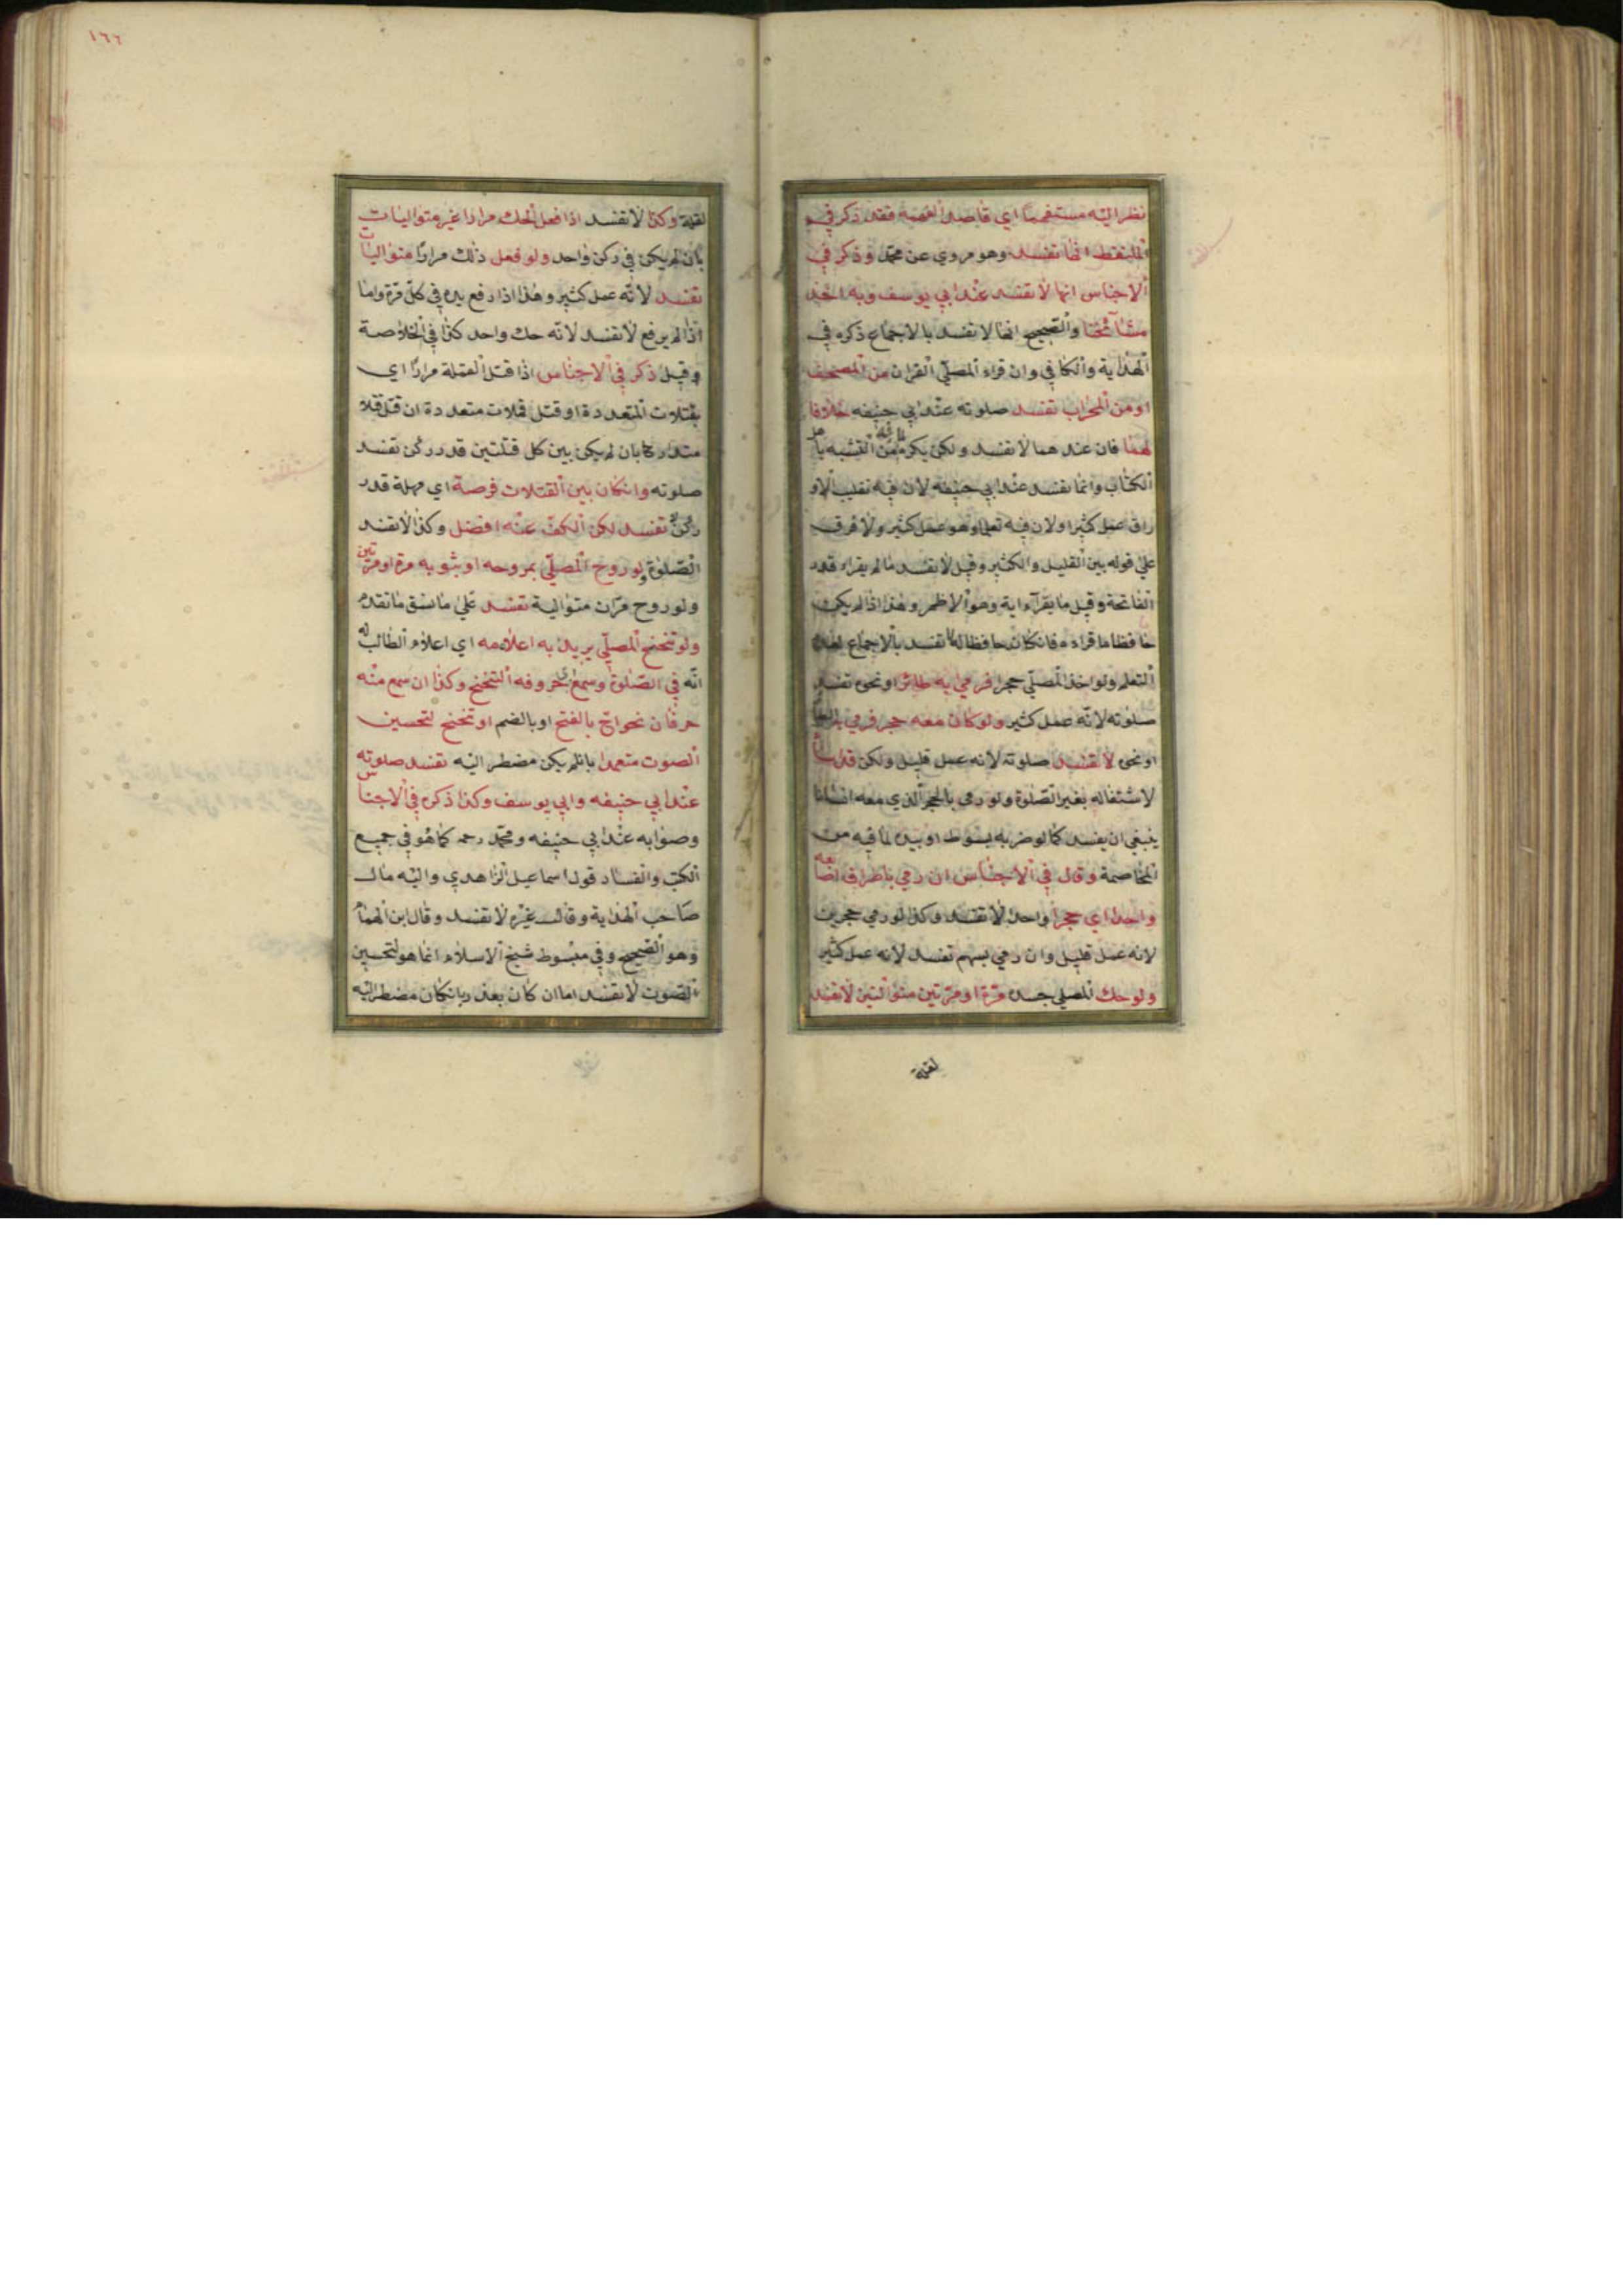 نظر اليه مستفهما اي قاصدا لفهمه فقد ذكر في
الملتقط انها تفسد وهو مروي عن محمد وذكر في
الاجناس انها لا تفسد عند ابي يوسف وبه اخذ
مشآئخنا والصحيح انها لا تفسد بالاجماع ذكره في
الهداية والكافي وان قراء المصلي القران من المصحف
او من المحراب تفسد صلوته عند ابي حنيفه خلافا
لهما فان عندهما لا تفسد ولكن يكره من التشبه باهل
الكتاب وانما تفسد عند ابي حنيفه لان فيه تقليب الاو
راق عمل كثيرا ولان فيه تعلما وهو عمل كثير ولا فرق
علي قوله بين القليل والكثير وقيل لا تفسد ما لم يقراء قدر
الفاتحة وقيل ما يقراء اية وهو الاظهر وهذا اذا لم يكن
حافظا ما قراءه فانكان حافظا له لا تفسد بالاجماع لعدم
التعلم ولو اخذ المصلي حجرا فرمي به طائرا ونحوه تفسد
صلوته لانه عمل كثير ولو كان معه حجر فرمي به
او نحوه لا تفسد صلوته لانه عمل قليل ولكن قد اساء
لاشتغاله بغير الصلوة ولو رمي بالحجر الذي معه انسانا
ينبغي ان يفسد كما لو ضربه بسوط او بيده لما فيه من
المخاصمة وقال في الاجناس ان رمي باطراف اصابعه
واحدا اي حجرا واحدا لا تفسد وكذا لو رمي حجرين
لانه عمل قليل وان رمي بسهم تفسد لانه عمل كثير
ولو حك المصلي جسده مرة او مرتين متواليتين لا تفسد
لقلة
١٦٦
لقلة وكذا لا تفسد اذا فعل الحك مرارا غير متواليات
بان لم يكن في ركن واحد ولو فعل ذلك مرارا متواليات
تفسد لانه عمل كثير وهذا اذا رفع يده في كل مرة واما
اذا لم يرفع لا تفسد لانه حك واحد كذا في الخلاصة
وقيل ذكر في الاجناس اذا قتل القملة مرارا اي
بقتلات المتعددة او قتل قملات متعددة ان قتل قتلا
متداركا بان لم يكن بين كل قتلتين قدر ركن تفسد
صلوته وانكان بين القتلات فرصة اي مهلة قدر
ركن لا تفسد لكن الكف عنه افضل وكذا لا تفسد
الصلوة ولو روح المصلي بمروحه او بثوبه مرة او مرتين
ولو روح مرات متوالية تفسد علي ما سبق ما تقدم
ولو تنحنح المصلي يريد به اعلامه اي اعلام الطالب له
انه في الصلوة وسمع حروفه التنحنح وكذا ان سمع منه
حرفان نحو اح بالفتح او بالضم او تنحنح لتحسين
الصوت متعمدا بانلم يكن مضطر اليه تفسد صلوته
عند ابي حنيفه وابي يوسف وكذا ذكره في الاجناس
وصوابه عند ابي حنيفه ومحمد رحمه كما هو في جميع
الكتب والفساد قول اسماعيل الزاهدي واليه مال
صاحب الهداية وقالـ غيره لا تفسد وقال ابن الهمام
وهو الصحيح وفي مبسوط شيخ الاسلام انما هو لتحسين
الصوت لا تفسد اما ان كان بعذر بانكان مضطر اليه